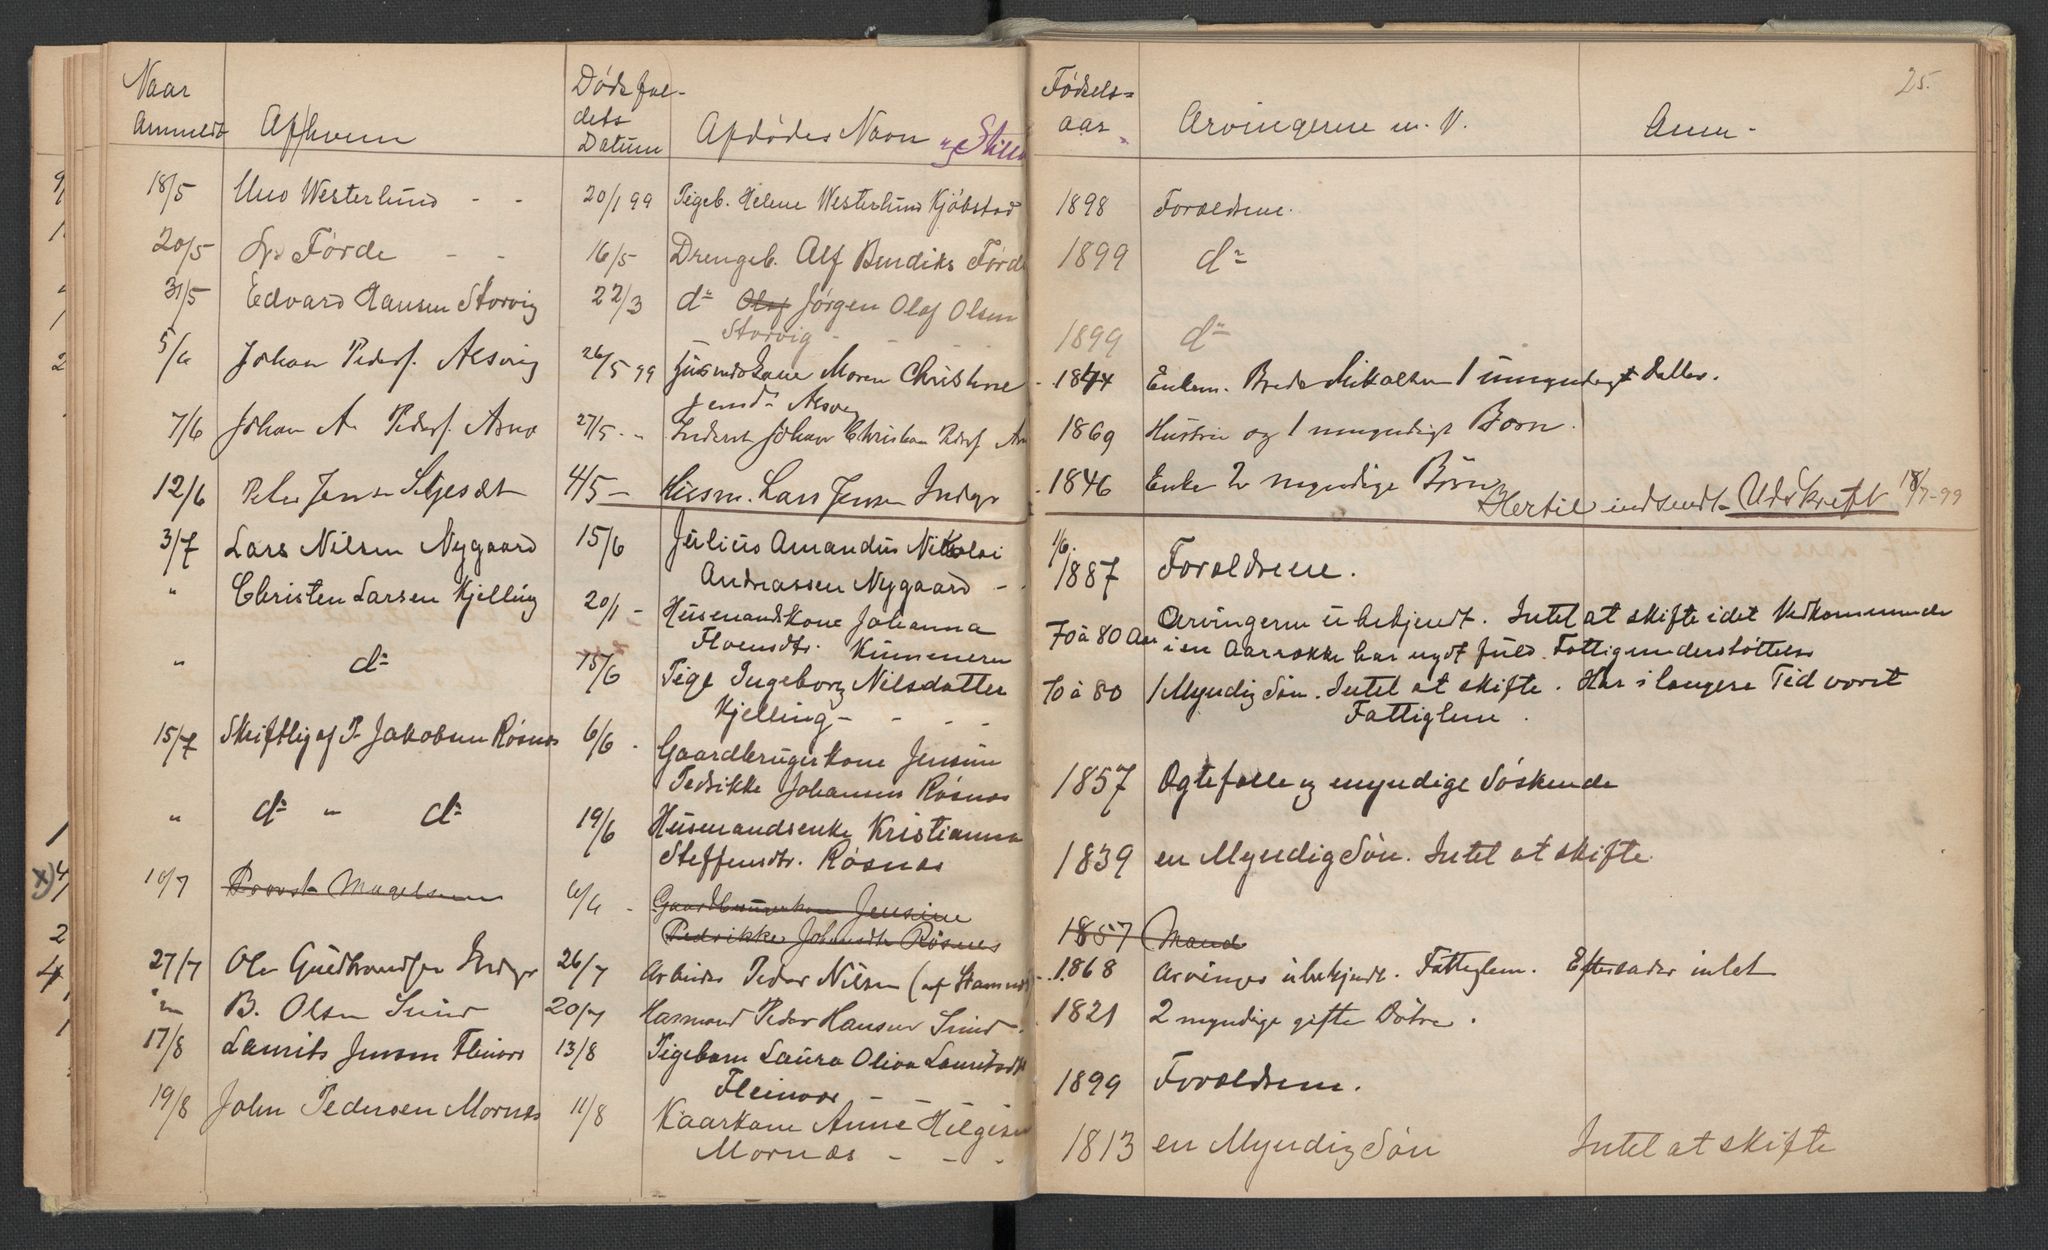 Naar Anmeldt | Af hvem | Dødsfaldets Datum | Afdødes Navn og | Fødselsaar | Arvingerne m. V. | Anm. | 25.
18/5 | Uno Westerlund - - | 20/1 99 | Pigeb. Helene Westerlund Kjøbstad | 1898 | Forældrene.
20/5 | Førde - - | 16/5 | Drengeb. Alf Bendiks Førde | 1899 | do
31/5 | Edvard Hansen Storvig | 22/3 | do Olaf Jørgen Olaf Olsen
Storvig - - - | 1899 | do
5/6 | Johan Peders. Alsvig | 26/5 99 | Maren Christine | 1844 | Enkem. 1 umyndigt
Alsvig
7/6 | Johan A. Peders. Arnø | 27/5 - " | Inderst Johan Christian Peders. | 1869 | Hustru og 1 umyndigt Barn.
12/6 | Peder Jensen | 4/5 - | Husm. Lars Jensen Indyr | 1846 | Enke 2 myndige Børn
Hertil indsendt Udskrift 18/7-99
3/7 | Lars Nilsen Nygaard | 15/6 | Julius Amandus Nikolai
Andreassen Nygaard - - | 1/6 1887 | Forældrene.
" | Christen Larsen Kjelling | 20/1 - | Husmandskone Johanna
| 70 à 80 Aar | Arvingerne ubekjendt. Intet at skifte idet Vedkommende
i en Aarrække har nydt fuld Fattigunderstøttelse
" | do | 15/6 | Pige Ingeborg Nilsdatter
Kjelling - - - - | 70 à 80 | 1 Myndig Søn. Intet at skifte. Har i længere Tid været
Fattiglem.
15/7 | Skriftlig af P. Jakobsen Røsnes | 6/6 - | Gaardbrugerkone Jensine
Pedrikke Johansen Røsnes | 1857 | Ægtefælle og myndige Søskende
" | do " do | 19/6 | Husmandsenke Kristianna
Steffensdtr. Røsnæs | 1839 | en Myndig Søn. Intet at skifte
18/7 | Provst Magelssen | 6/6 - | Gaardbrugerkone Jensine
Pedrikke Johansdtr Røsnes | 1857 | Mand
27/7 | Ole Gudbrandsen Indyr | 26/7 | Arbeider Peder Nilsen (af | 1868 | Arvinger ubekjendt. Fattiglem. | Efterlader intet
" | B. Olsen Sund | 20/7 | Peder Hansen Sund | 1821 | 2 myndige gifte Døtre.
17/8 | Laurits Jensen Fleinvær | 13/8 | Pigebarn Laura Oliva Lauritsdtr
Fleinvær - - - | 1899 | Forældrene.
19/8 | John Pedersen Mornes | 11/8 | Kaarkone Anne Helgesen
Mornæs - - - | 1813 | en Myndig Søn | Intet at skifte
1
x) 4/
2
4
1